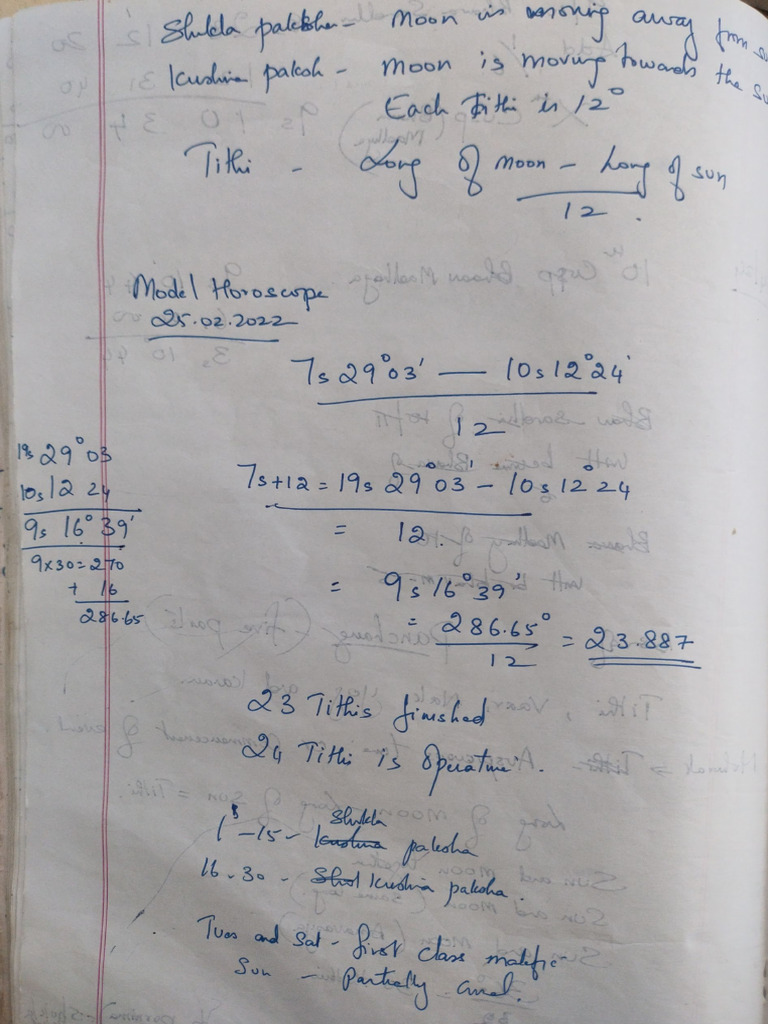 Shukla paksha - Moon is moving away from su
Krushna paksh - Moon is moving towards the su
Each Tithi is 12°
Tithi - Long of moon - Long of sun
12 .
Model Horoscope
25.02.2022
7s 29°03' — 10s 12°24'
12
7s+12 = 19s 29°03' - 10s 12°24
= 12.
= 9s 16°39'
= 286.65° = 23.887
12
19s 29°03
10s 12 24
9s 16°39'
9x30=270
+ 16
286.65
23 Tithis finished
24 Tithi is operative.
Shukla
1 -15 - Krushna paksha
16 - 30 - Shu Krushna paksha.
Tues and Sat - first class malefic
Sun - Partially cruel.